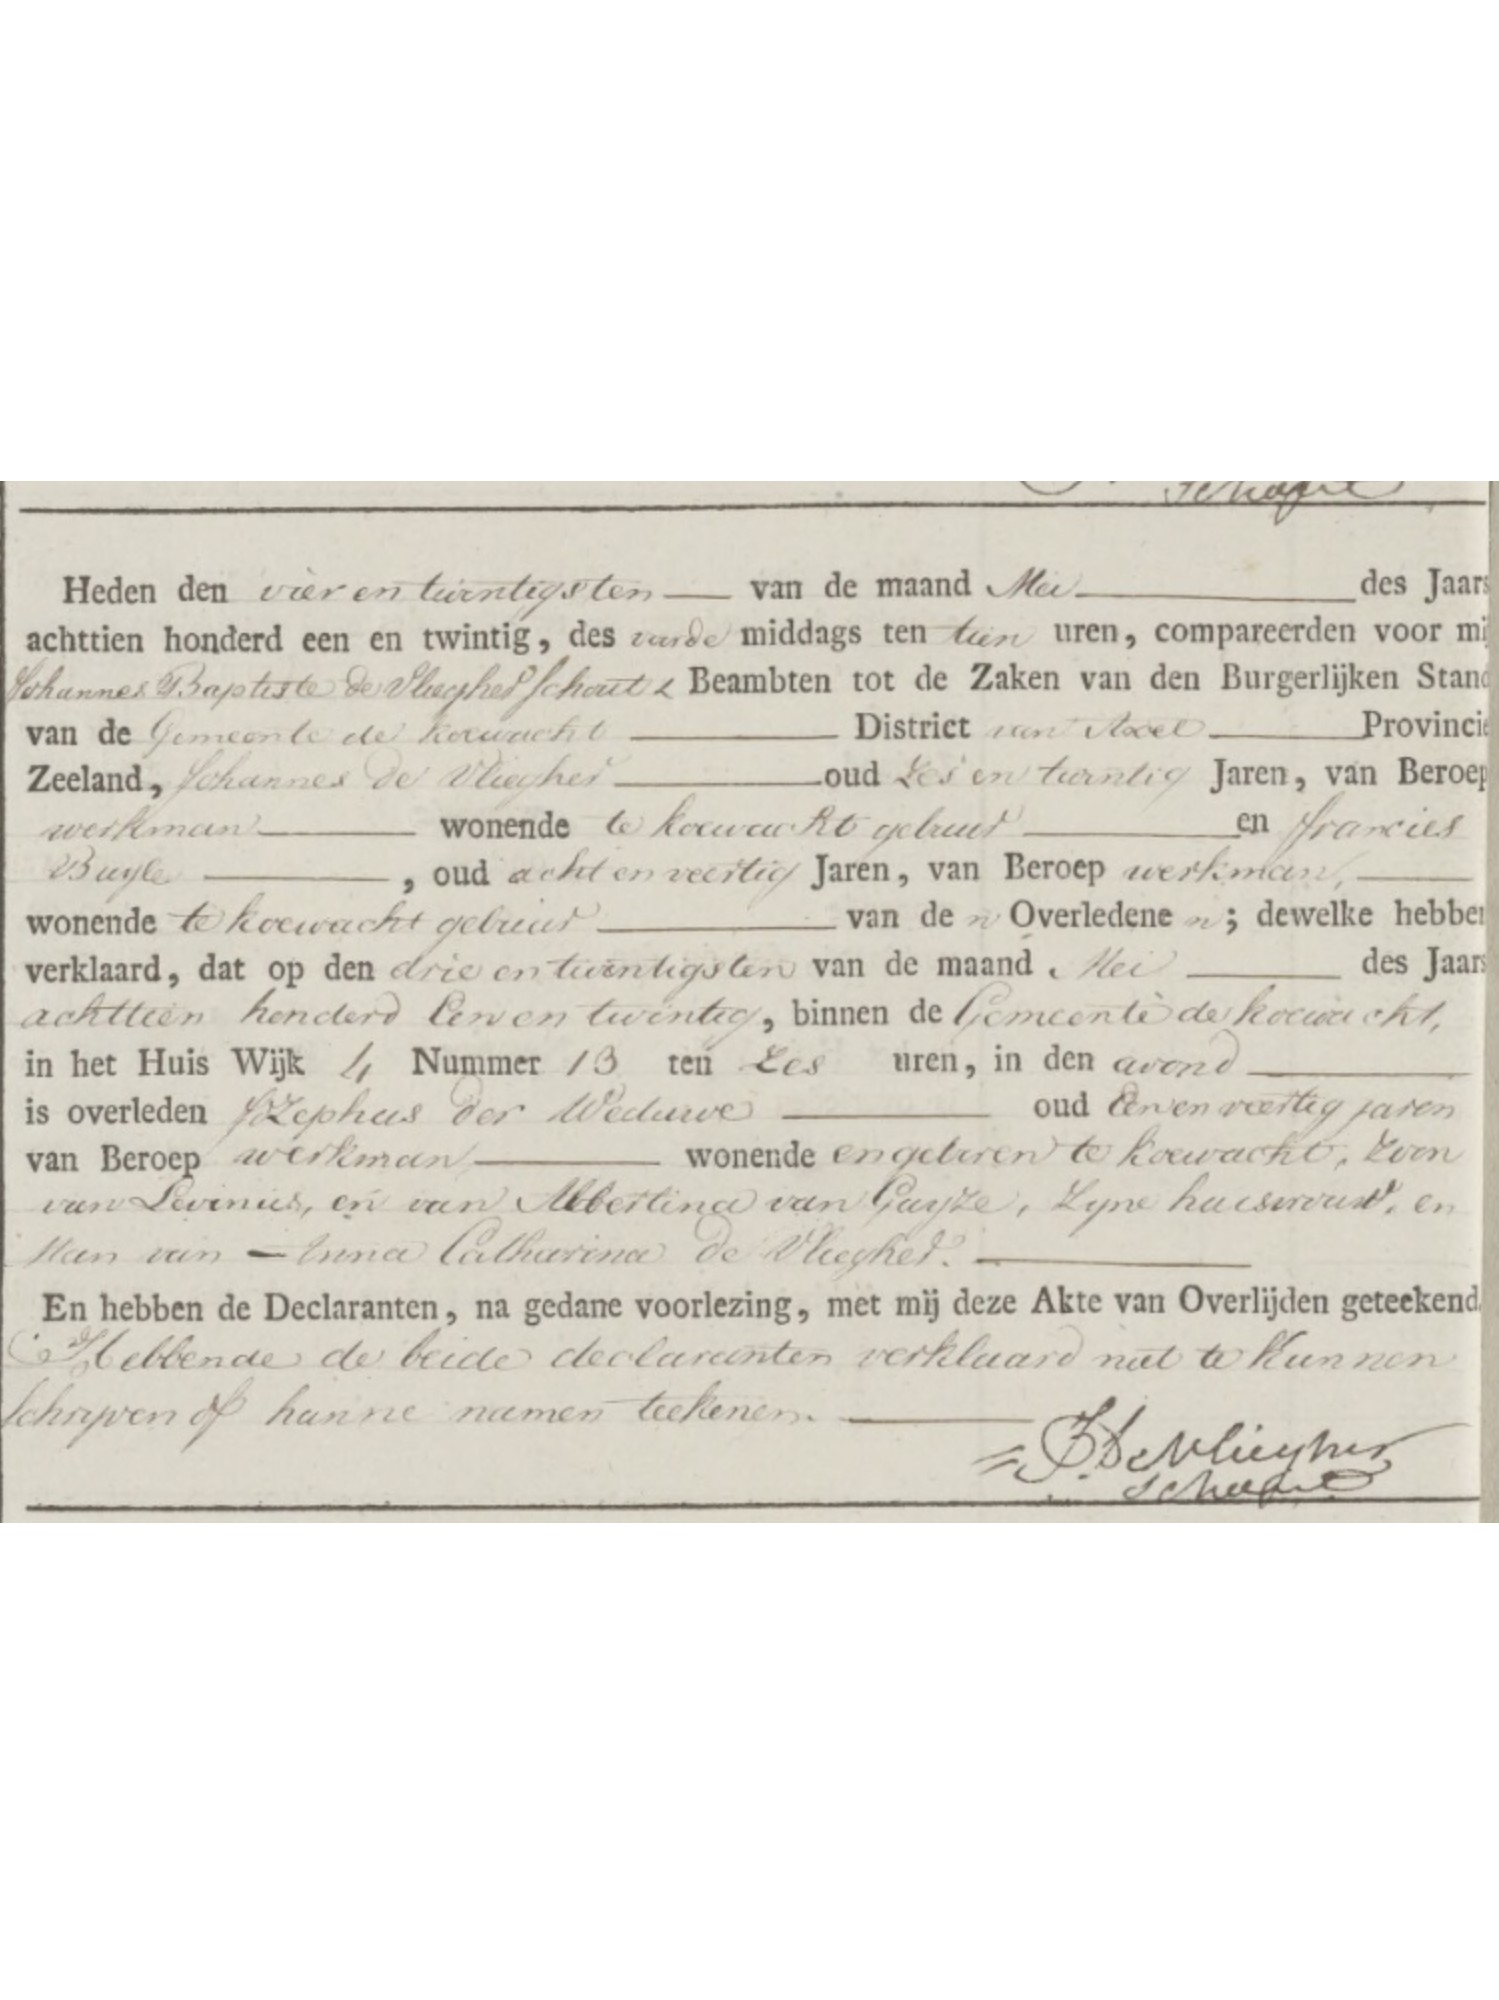 Heden den vier en twintigsten van de maand Mei des Jaars
achttien honderd een en twintig, des voorde middags ten tien uren, compareerden voor mij
Johannes Baptiste de Vliegher Schout & Beambten tot de Zaken van den Burgerlijken Stand
van de Gemeente de Koewacht District van Axel Provincie
Zeeland, Johannes De Vliegher oud Zes en twintig Jaren, van Beroep
werkman wonende te koewacht gebuur en francies
Buyle, oud acht en veertig Jaren, van Beroep werkman,
wonende te koewacht gebuur van de n Overledene n; dewelke hebben
verklaard, dat op den drie en twintigsten van de maand Mei des Jaars
achttien honderd Een en twintig, binnen de Gemeente de koewacht,
in het Huis Wijk 4 Nummer 13 ten Zes uren, in den avond
is overleden Jozephus der Weduwe oud Een en veertig jaren
van Beroep werkman wonende en geboren te koewacht, Zoon
van Levinus, en van Albertina van Guyze, Zyne huisvrouw, en
Man van Anna Catharina De Vliegher.
En hebben de Declaranten, na gedane voorlezing, met mij deze Akte van Overlijden geteekend.
Hebbende de beide declaranten verklaard niet te Kunnen
Schryven of hunne namen teekenen.
J. B. De Vliegher